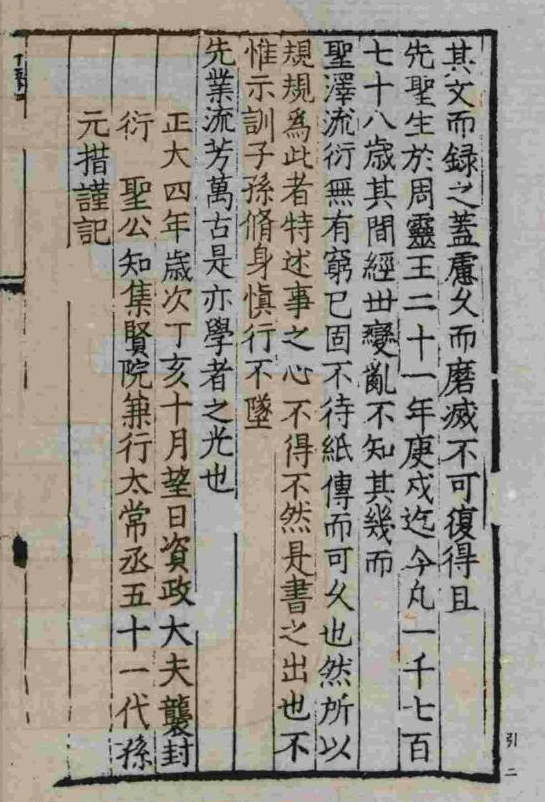 其文而録之蓋慮久而磨滅不可復得且
先聖生於周靈王二十一年庚戌迄今凡一千七百
七十八歳其間經丗變亂不知其幾而
聖澤流衍無有窮已固不待紙傳而可久也然所以
規規爲此者特述事之心不得不然是書之出也不
惟示訓子孫脩身愼行不墜
先業流芳萬古是亦學者之光也
正大四年歳次丁亥十月望日資政大夫襲封
衍 聖公知集賢院兼行太常丞五十一代孫
元措謹記
引 二